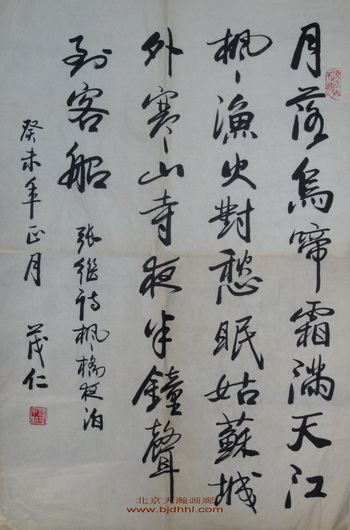 月落烏啼霜滿天江
楓漁火對愁眠姑蘇城
外寒山寺夜半鐘聲
到客船
張繼詩楓橋夜泊
癸未年正月 茂仁
北京大瀚画廊
www.bjdhhl.com